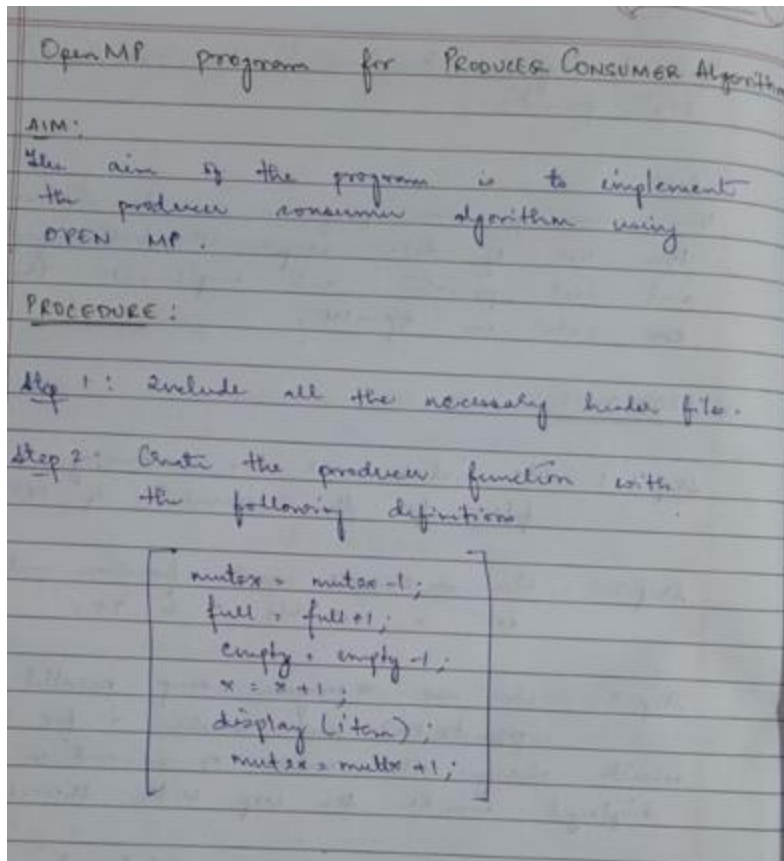 OpenMP program for PRODUCER CONSUMER Algorithm
AIM:
The aim of the program is to implement
the producer consumer algorithm using
OPEN MP.
PROCEDURE:
Step 1: Include all the necessary header files.
Step 2: Create the producer function with
the following definition
mutex = mutex-1;
full = full+1;
empty = empty-1;
x = x+1;
display (item);
mutex = mutex +1;